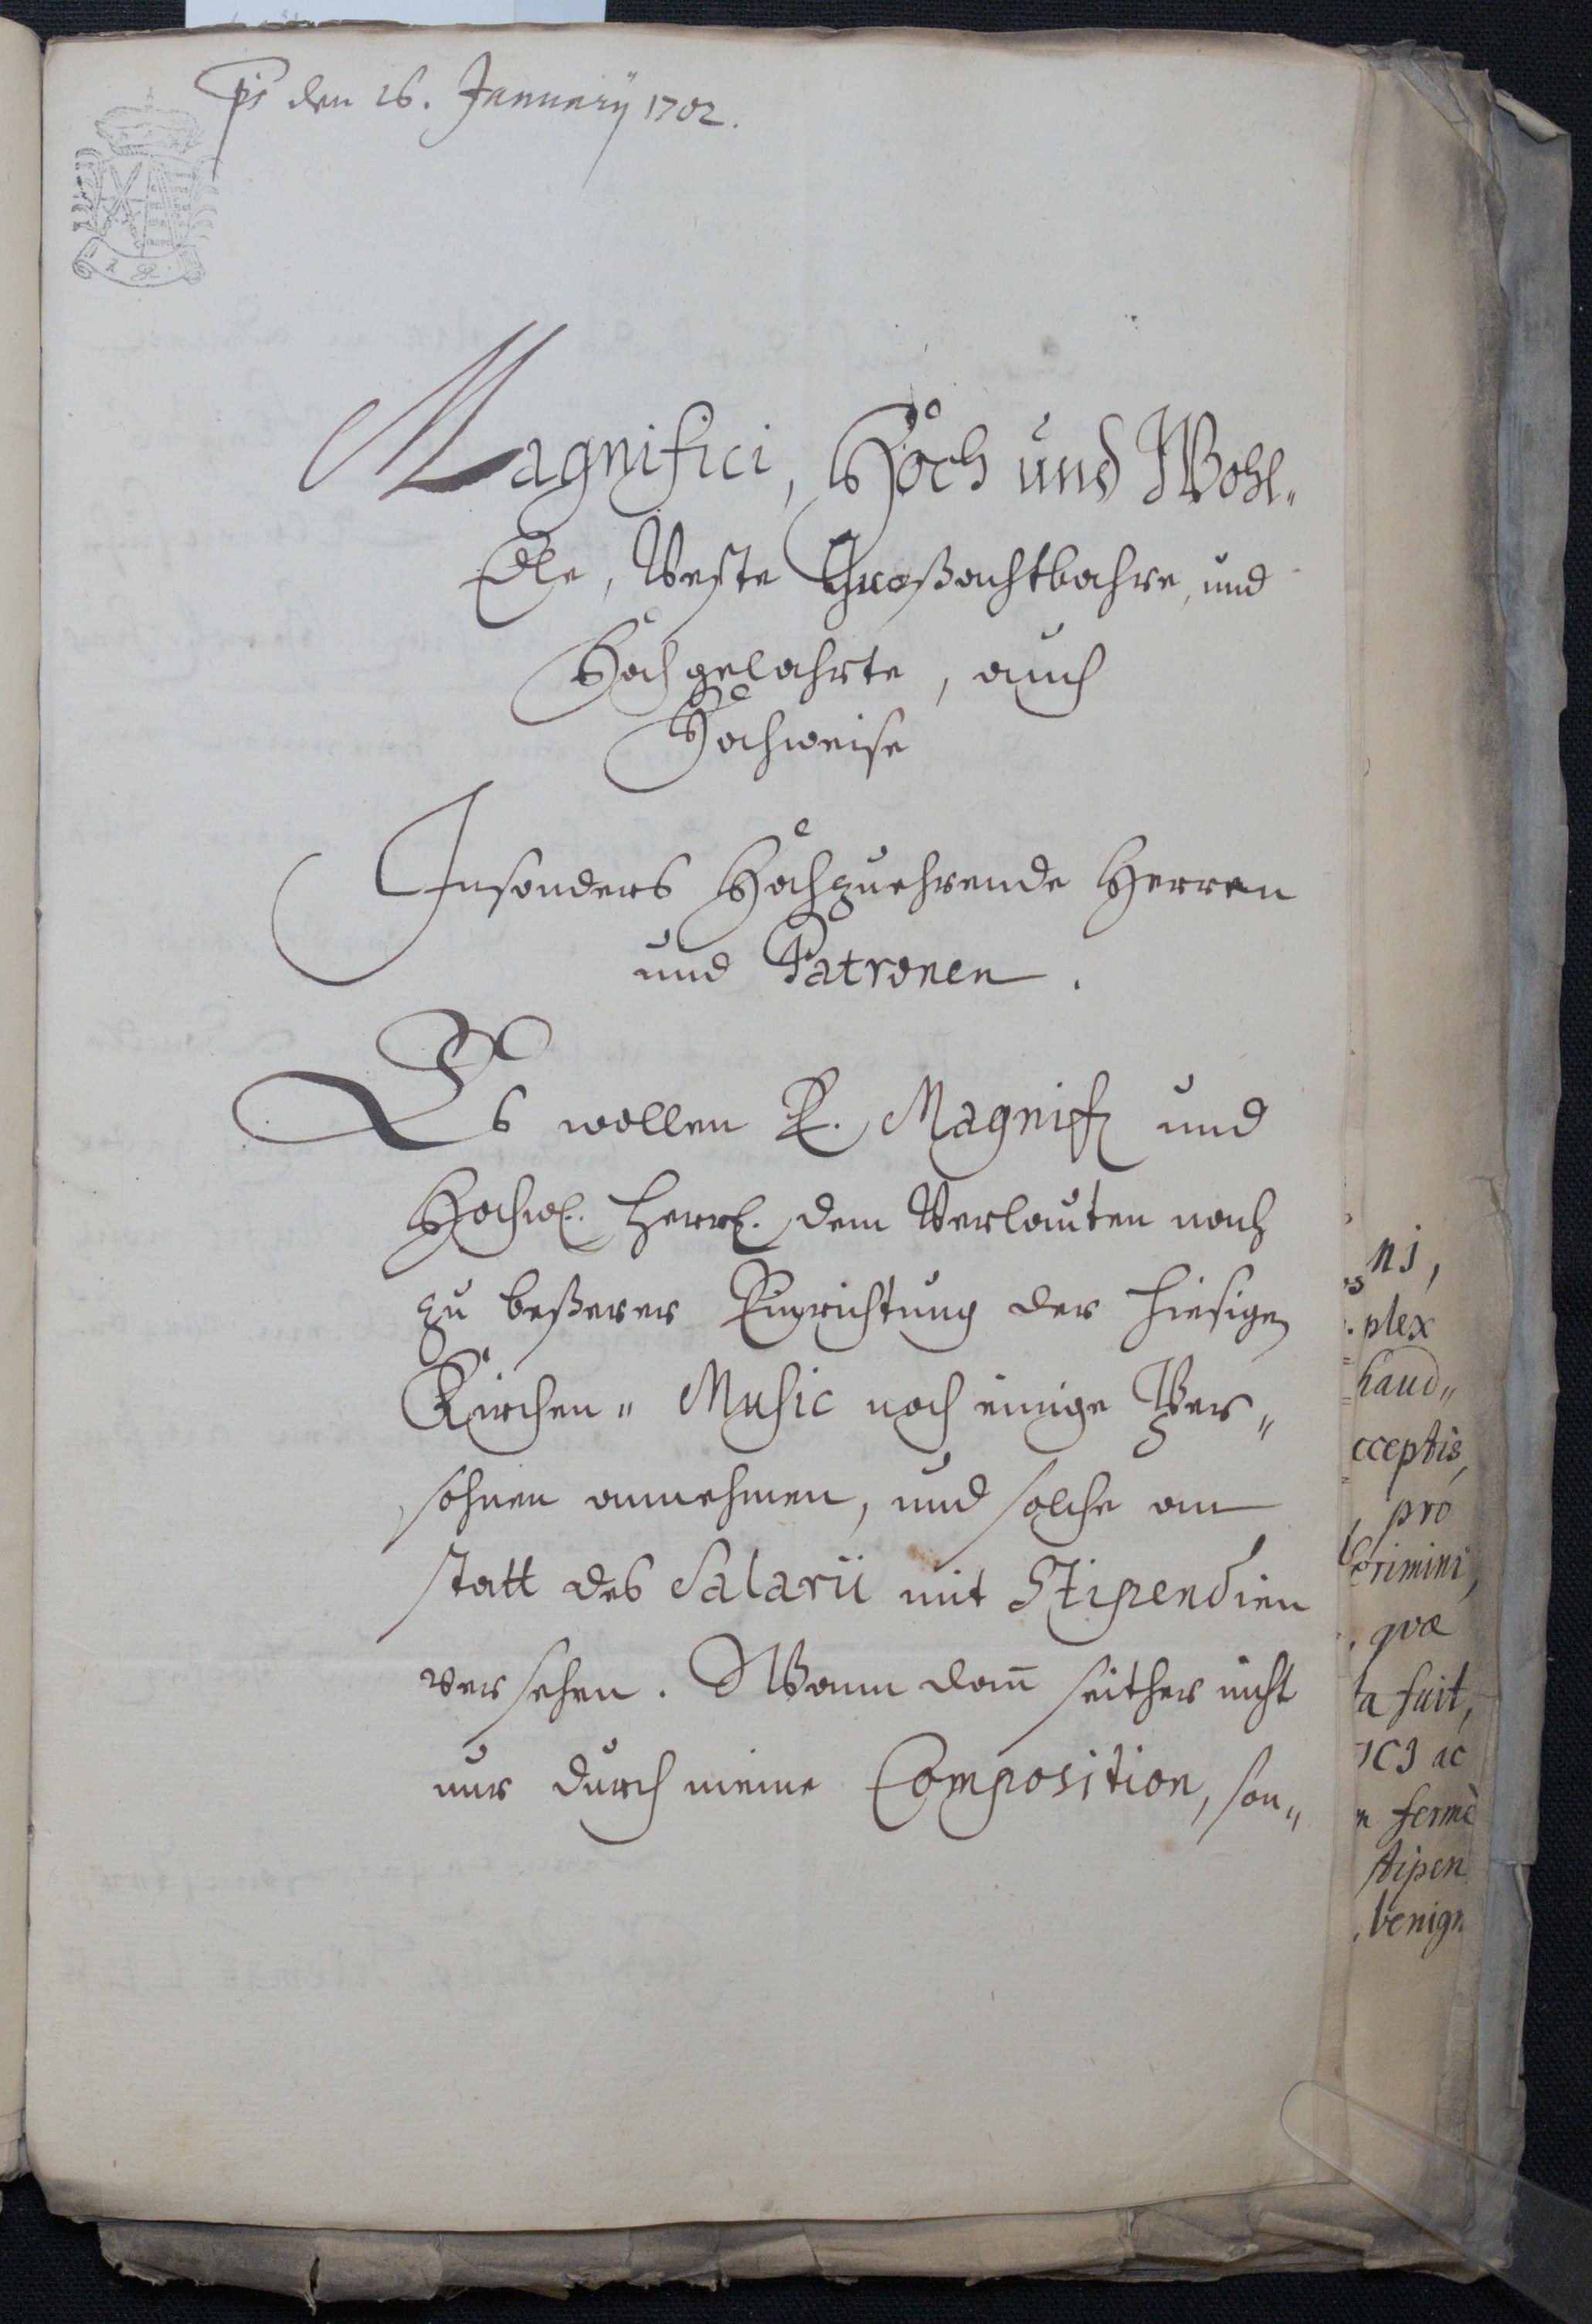 ps den 26. January 1702.
Magnifici, Hoch und Wohl-
Edle, Veste Großachtbahre, und
Hochgelahrte, auch
Hochweise
Insonders Hochzuehrende Herren
und Patronen.
Es wollen E. Magnif und
Hochw. Herrl. dem Verlauten nach
zu beßerer Einrichtung der hiesigen
Kirchen- Music noch einige Per-
sohnen annehmen, und solche an
statt des Salarii mit Stipendien
versehen. Wann dann seither nicht
nur durch meine Composition, son-
ni,
plex
haud
cceptis,
pro
crimini,
qvæ
ta fuit,
ICJ ac
fermè
stipen
benign